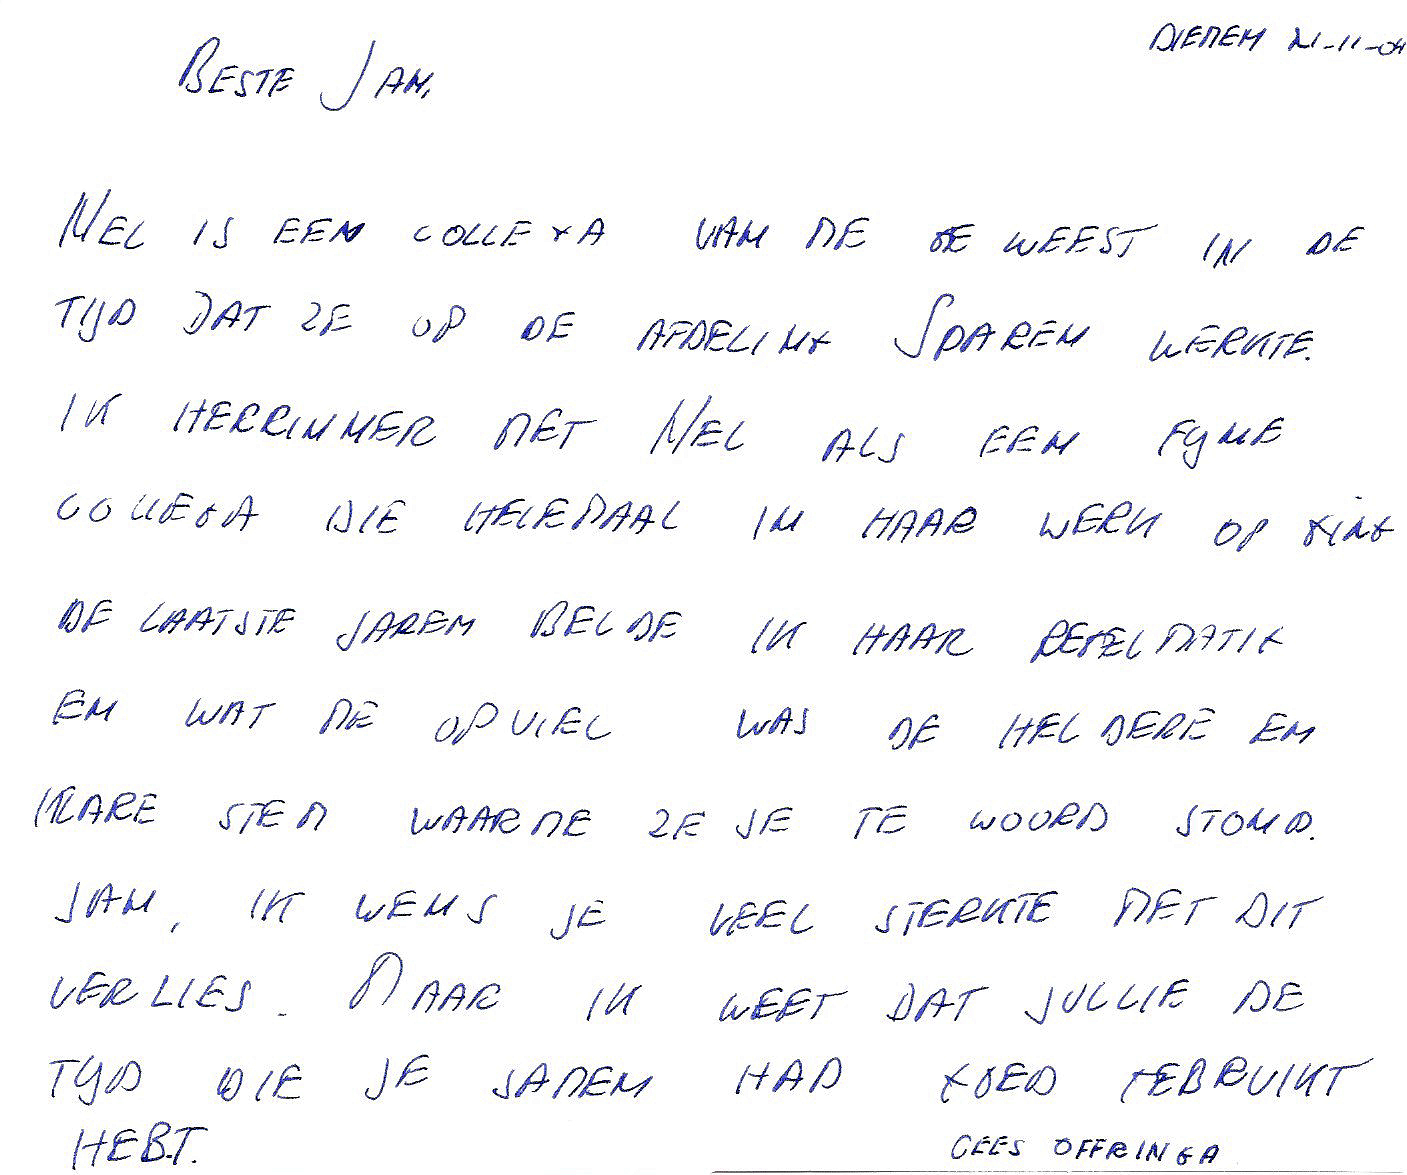 DIEMEN 21-11-04
BESTE JAN,
NEL IS EEN COLLEGA VAN ME GEWEEST IN DE
TIJD DAT ZE OP DE AFDELING SPAREN WERKTE.
IK HERRINNER MET NEL ALS EEN FIJNE
COLLEGA DIE HELEMAAL IN HAAR WERK OP GING
DE LAATSTE JAREN BELDE IK HAAR REGELMATIG
EN WAT ME OPVIEL WAS DE HELDERE EN
KLARE STEM WAARMEE ZE JE TE WOORD STOND.
JAN, IK WENS JE VEEL STERKTE MET DIT
VERLIES. MAAR IK WEET DAT JULLIE DE
TIJD DIE JE SAMEN HAD GOED GEBRUIKT
HEBT.
CEES OFFRINGA